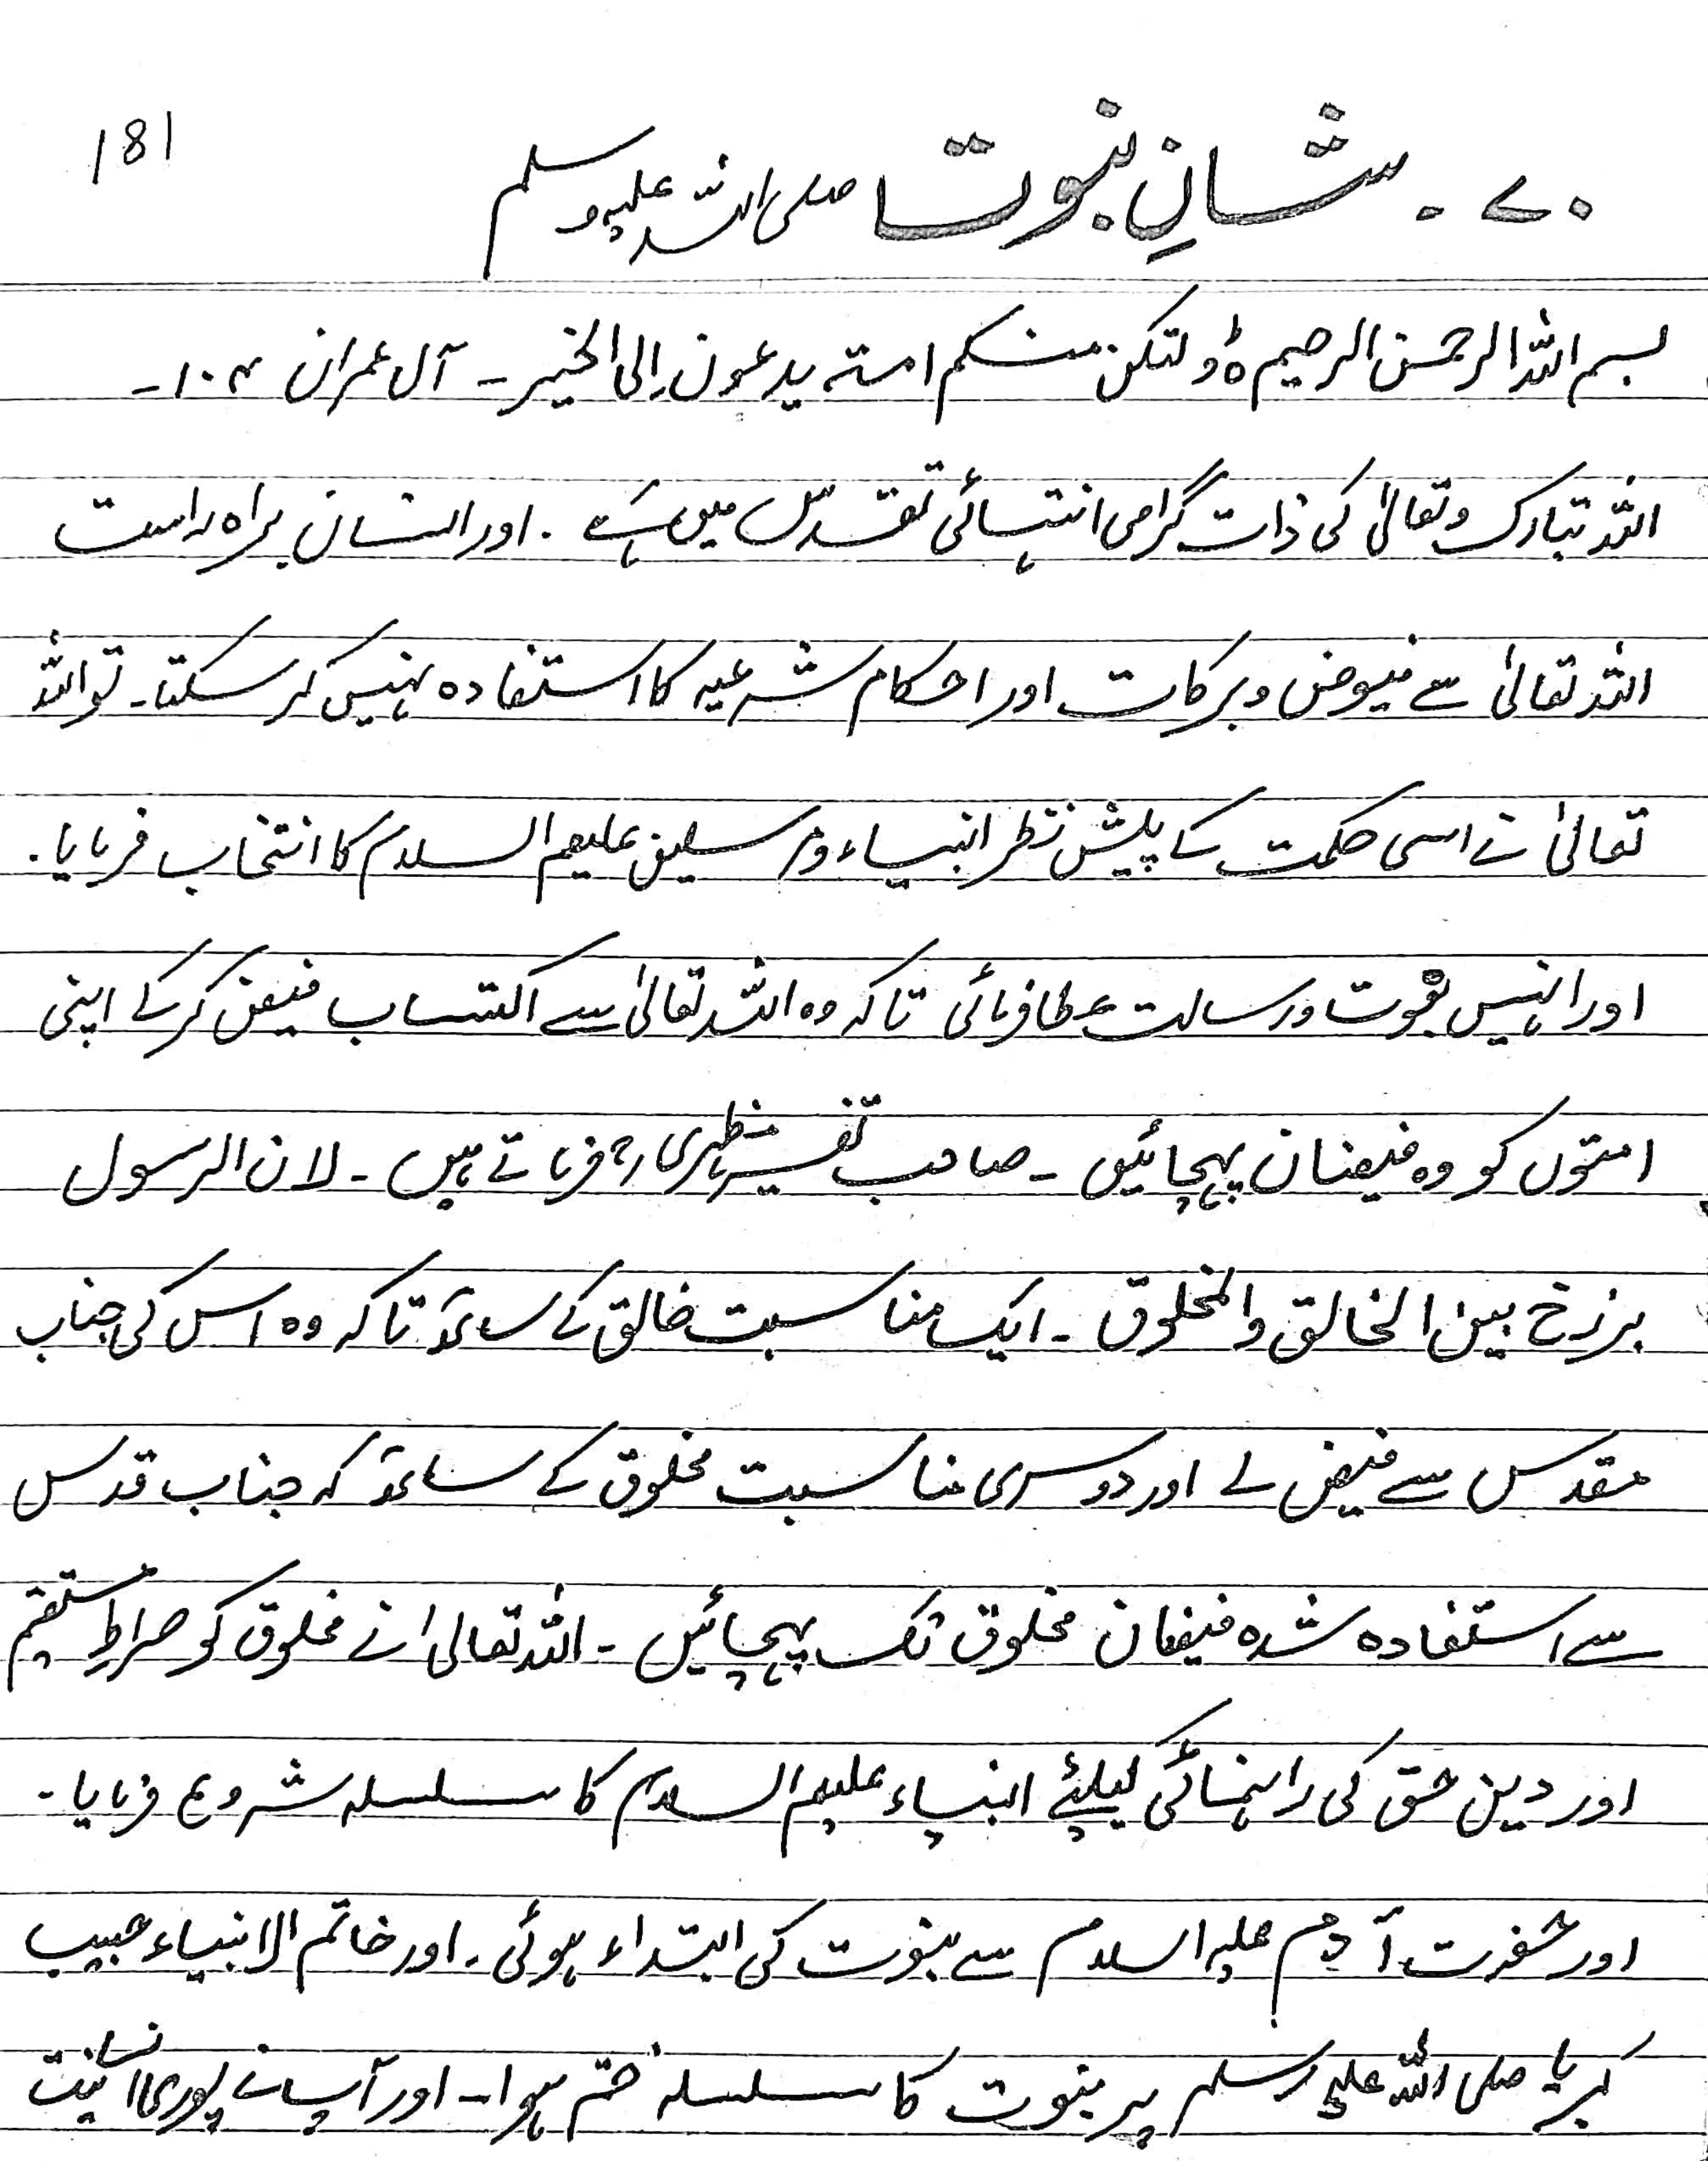 181
۷۰ ۔ شانِ نبوت صلی اللہ علیہ وسلم
بسم اللہ الرحمن الرحیم ہ ولتکن منکم امتہ یدعون اِلی الخیر ۔ آل عمران ۱۰۴ ۔
اللہ تبارک وتعالیٰ کی ذات گرامی انتہائی تقدس میں ہے ۔ اور انسان براہ راست
اللہ تعالیٰ سے فیوض وبرکات اور احکام شرعیہ کا استفادہ نہیں کر سکتا ۔ تو اللہ
تعالیٰ نے اسی حکمت کے پیش نظر انبیاء ومرسلین علیھم السلام کا انتخاب فرمایا ۔
اور انہیں نبوت ورسالت عطا فرمائی تاکہ وہ اللہ تعالیٰ سے اکتساب فیض کر کے اپنی
امتوں کو وہ فیضان پہچائیں ۔ صاحب تفسیر مظہری رح فرماتے ہیں ۔ لان الرسول
برزخ بین الخالق والمخلوق ۔ ایک مناسبت خالق کے ساتھ تاکہ وہ اس کی جناب
مقدس سے فیض لے اور دوسری مناسبت مخلوق کے ساتھ کہ جناب قدس
سے استفادہ شدہ فیضان مخلوق تک پہچائیں ۔ اللہ تعالیٰ نے مخلوق کو صراطِ مستقیم
اور دین حق کی راہنمائی کیلئے انبیاء علیہم السلام کا سلسلہ شروع فرمایا ۔
اور حضرت آدم علیہ اسلام سے نبوت کی ابتداء ہوئی ۔ اور خاتم الانبیاء حبیب
کبریا صلی اللہ علیہ وسلم پر نبوت کا سلسلہ ختم ہوا ۔ اور آپ نے پوری انسانیت